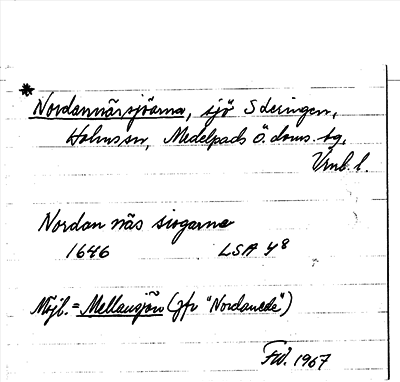 * Nordannärsjöarna, sjö S Leringen,
Holms sn, Medelpads ö. doms. tg,
Vnl. l.
Nordan näs siogarne
1646 LSA Y 8
Mjl. = Mellansjön (jfr "Nordanede")
FW. 1967